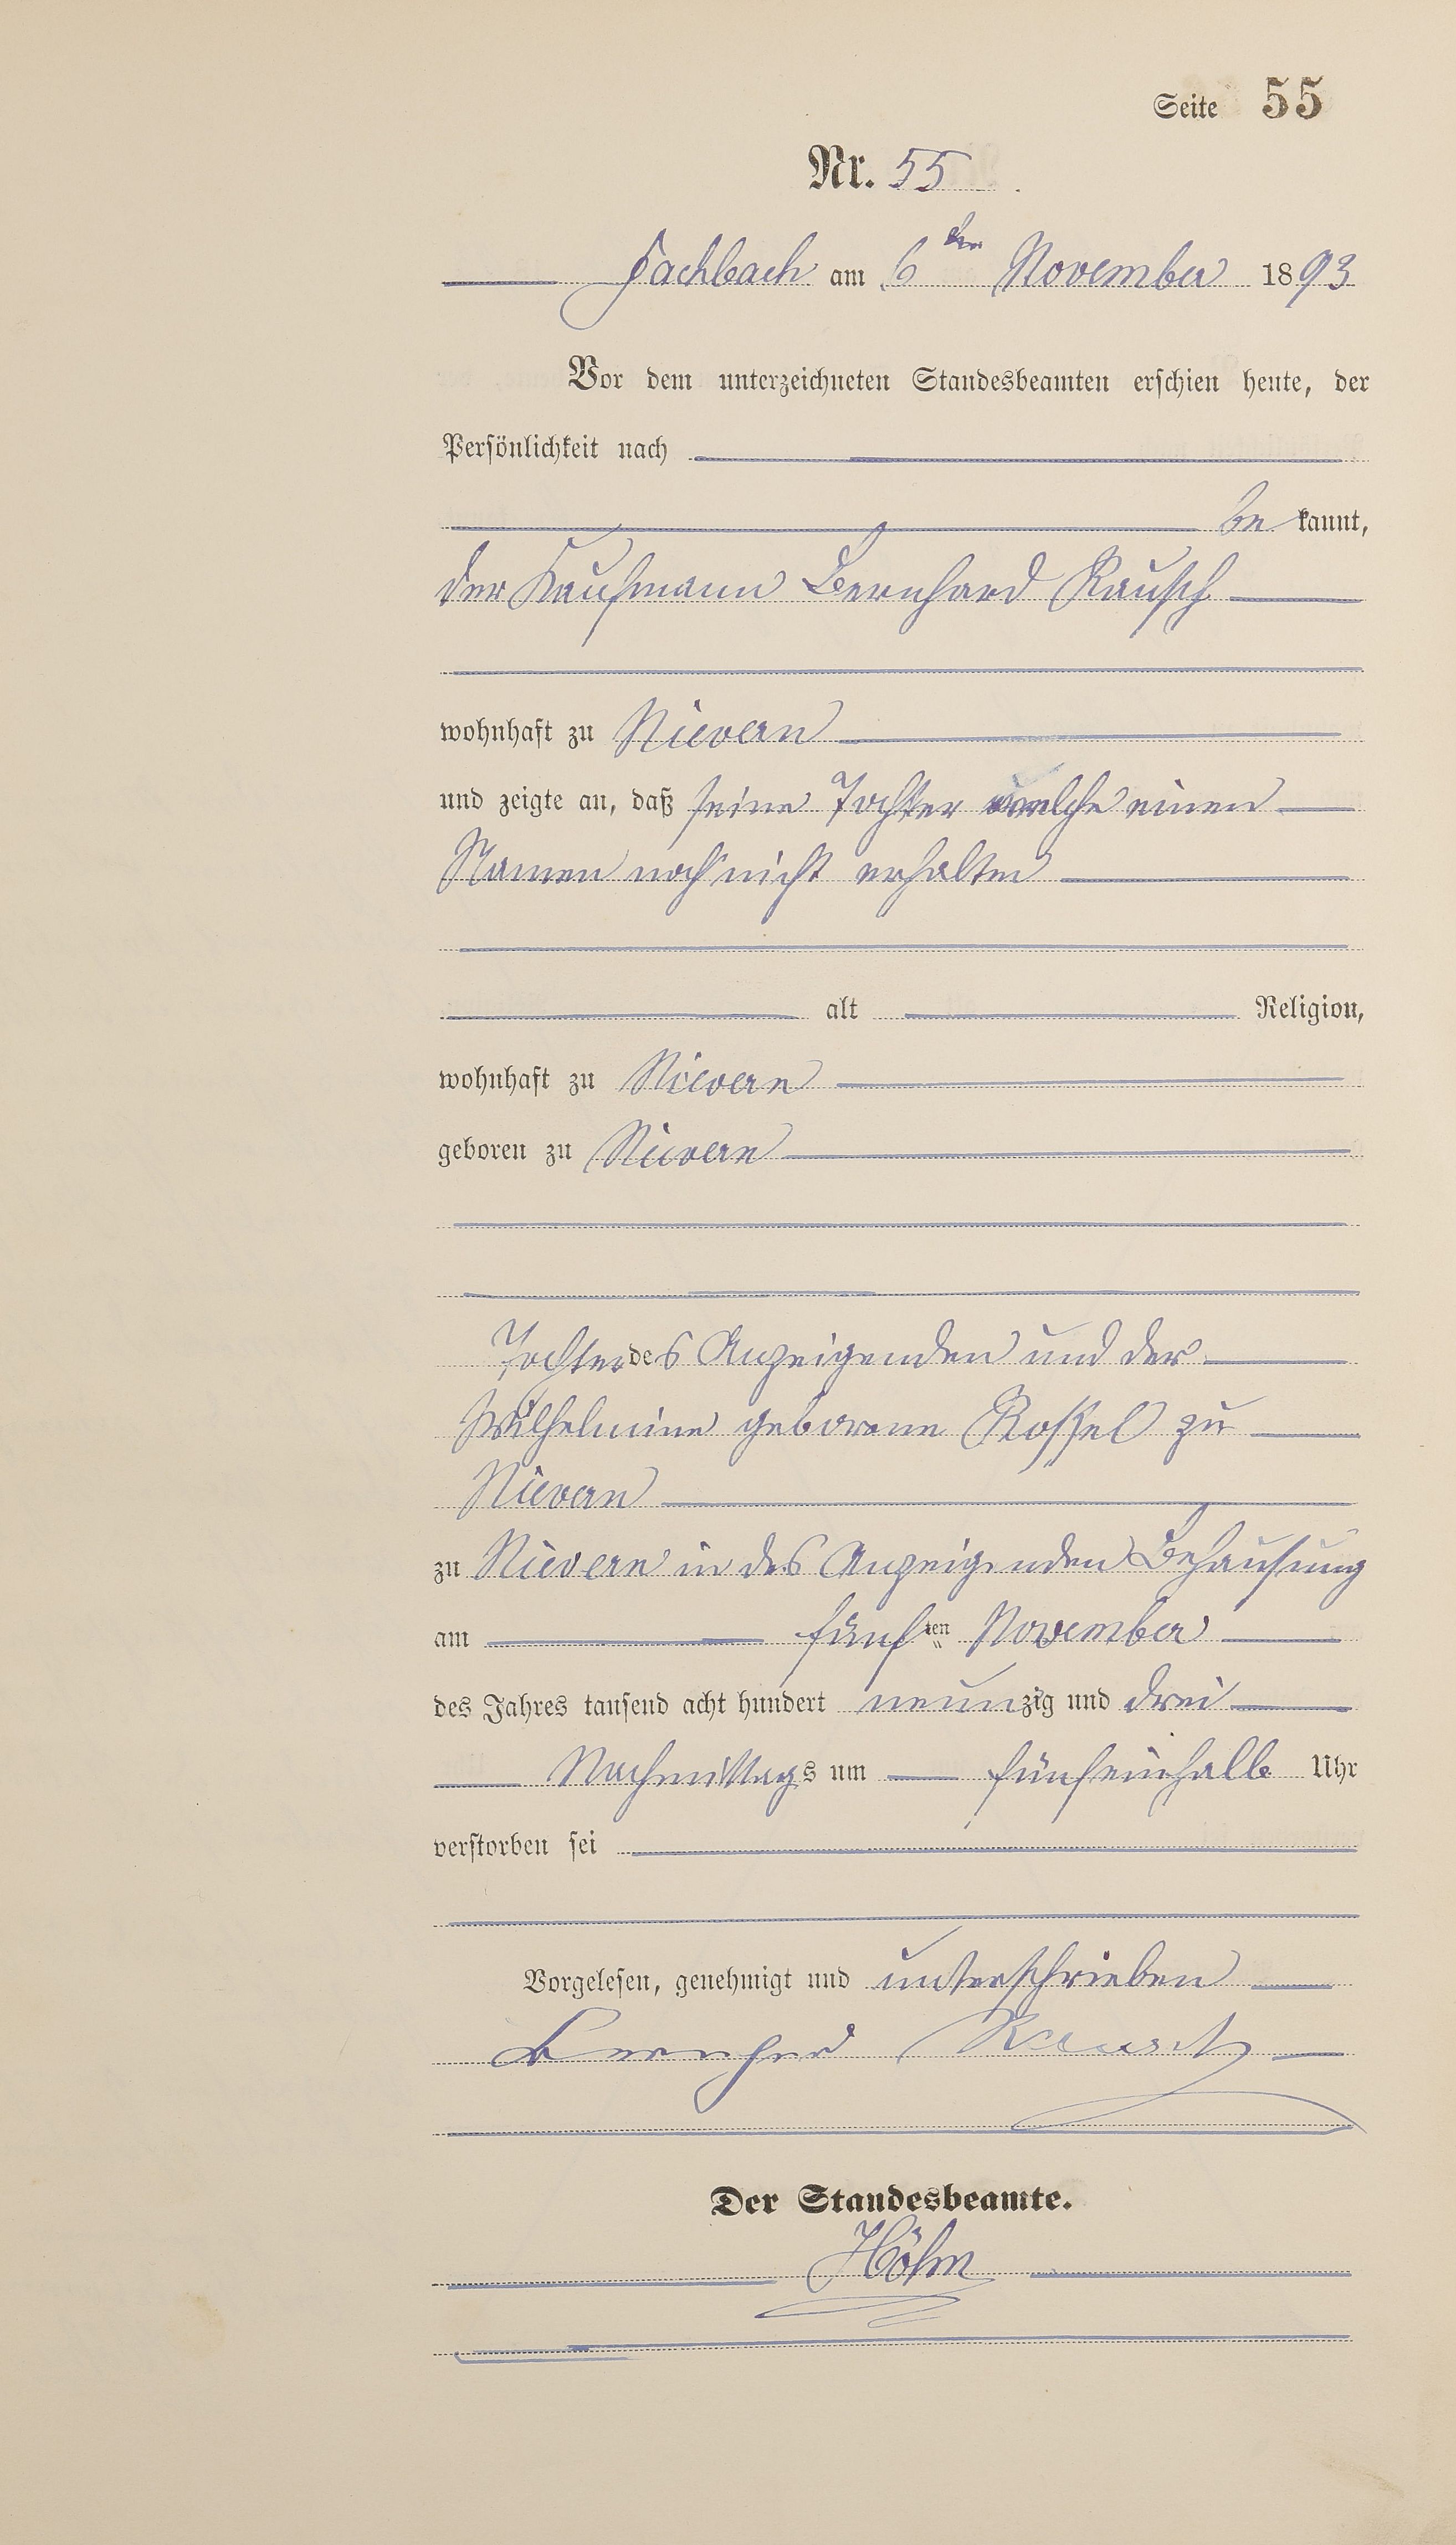 Seite 55
Nr. 55
Fachbach am 6ten November 1893
Vor dem unterzeichneten Standesbeamten erschien heute, der
Persönlichkeit nach
be kannt,
der Kaufmann Bernhard Rausch
wohnhaft zu Nievern
und zeigte an, daß seine Tochter welche einen
Namen noch nicht erhalten
alt Religion,
wohnhaft zu Nievern
geboren zu Nievern
Tochter des Anzeigenden und der
Wilhelmine geborene Roßel zu
Nievern
zu Nievern in des Anzeigenden Behausung
am fünften November
des Jahres tausend acht hundert neunzig und drei
Nachmittags um fünfeinhalb Uhr
verstorben sei
Vorgelesen, genehmigt und unterschrieben
Bernhard Rausch
Der Standesbeamte.
Höhn